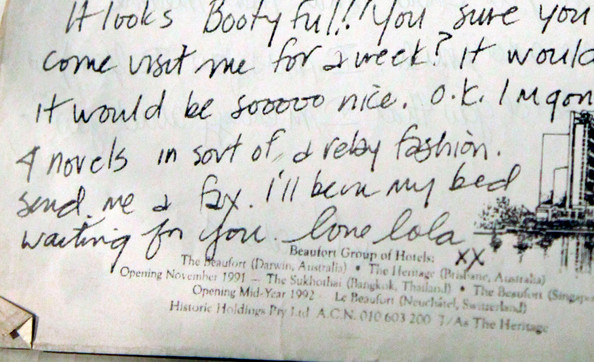 It looks Bootyful!! You sure you
come visit me for a week? It would
it would be sooooo nice. O.K. I'm gon
4 novels in sort of a relay fashion.
send me a fax. I'll be in my bed
waiting for you. love lola
xx
Beaufort Group of Hotels:
The Beaufort (Darwin, Australia) • The Heritage (Brisbane, Australia)
Opening November 1991 – The Sukhothai (Bangkok, Thailand) • The Beaufort (Singapo
Opening Mid-Year 1992 – Le Beaufort (Neuchâtel, Switzerland)
Historic Holdings Pty Ltd A.C.N. 010 603 200 T/As The Heritage